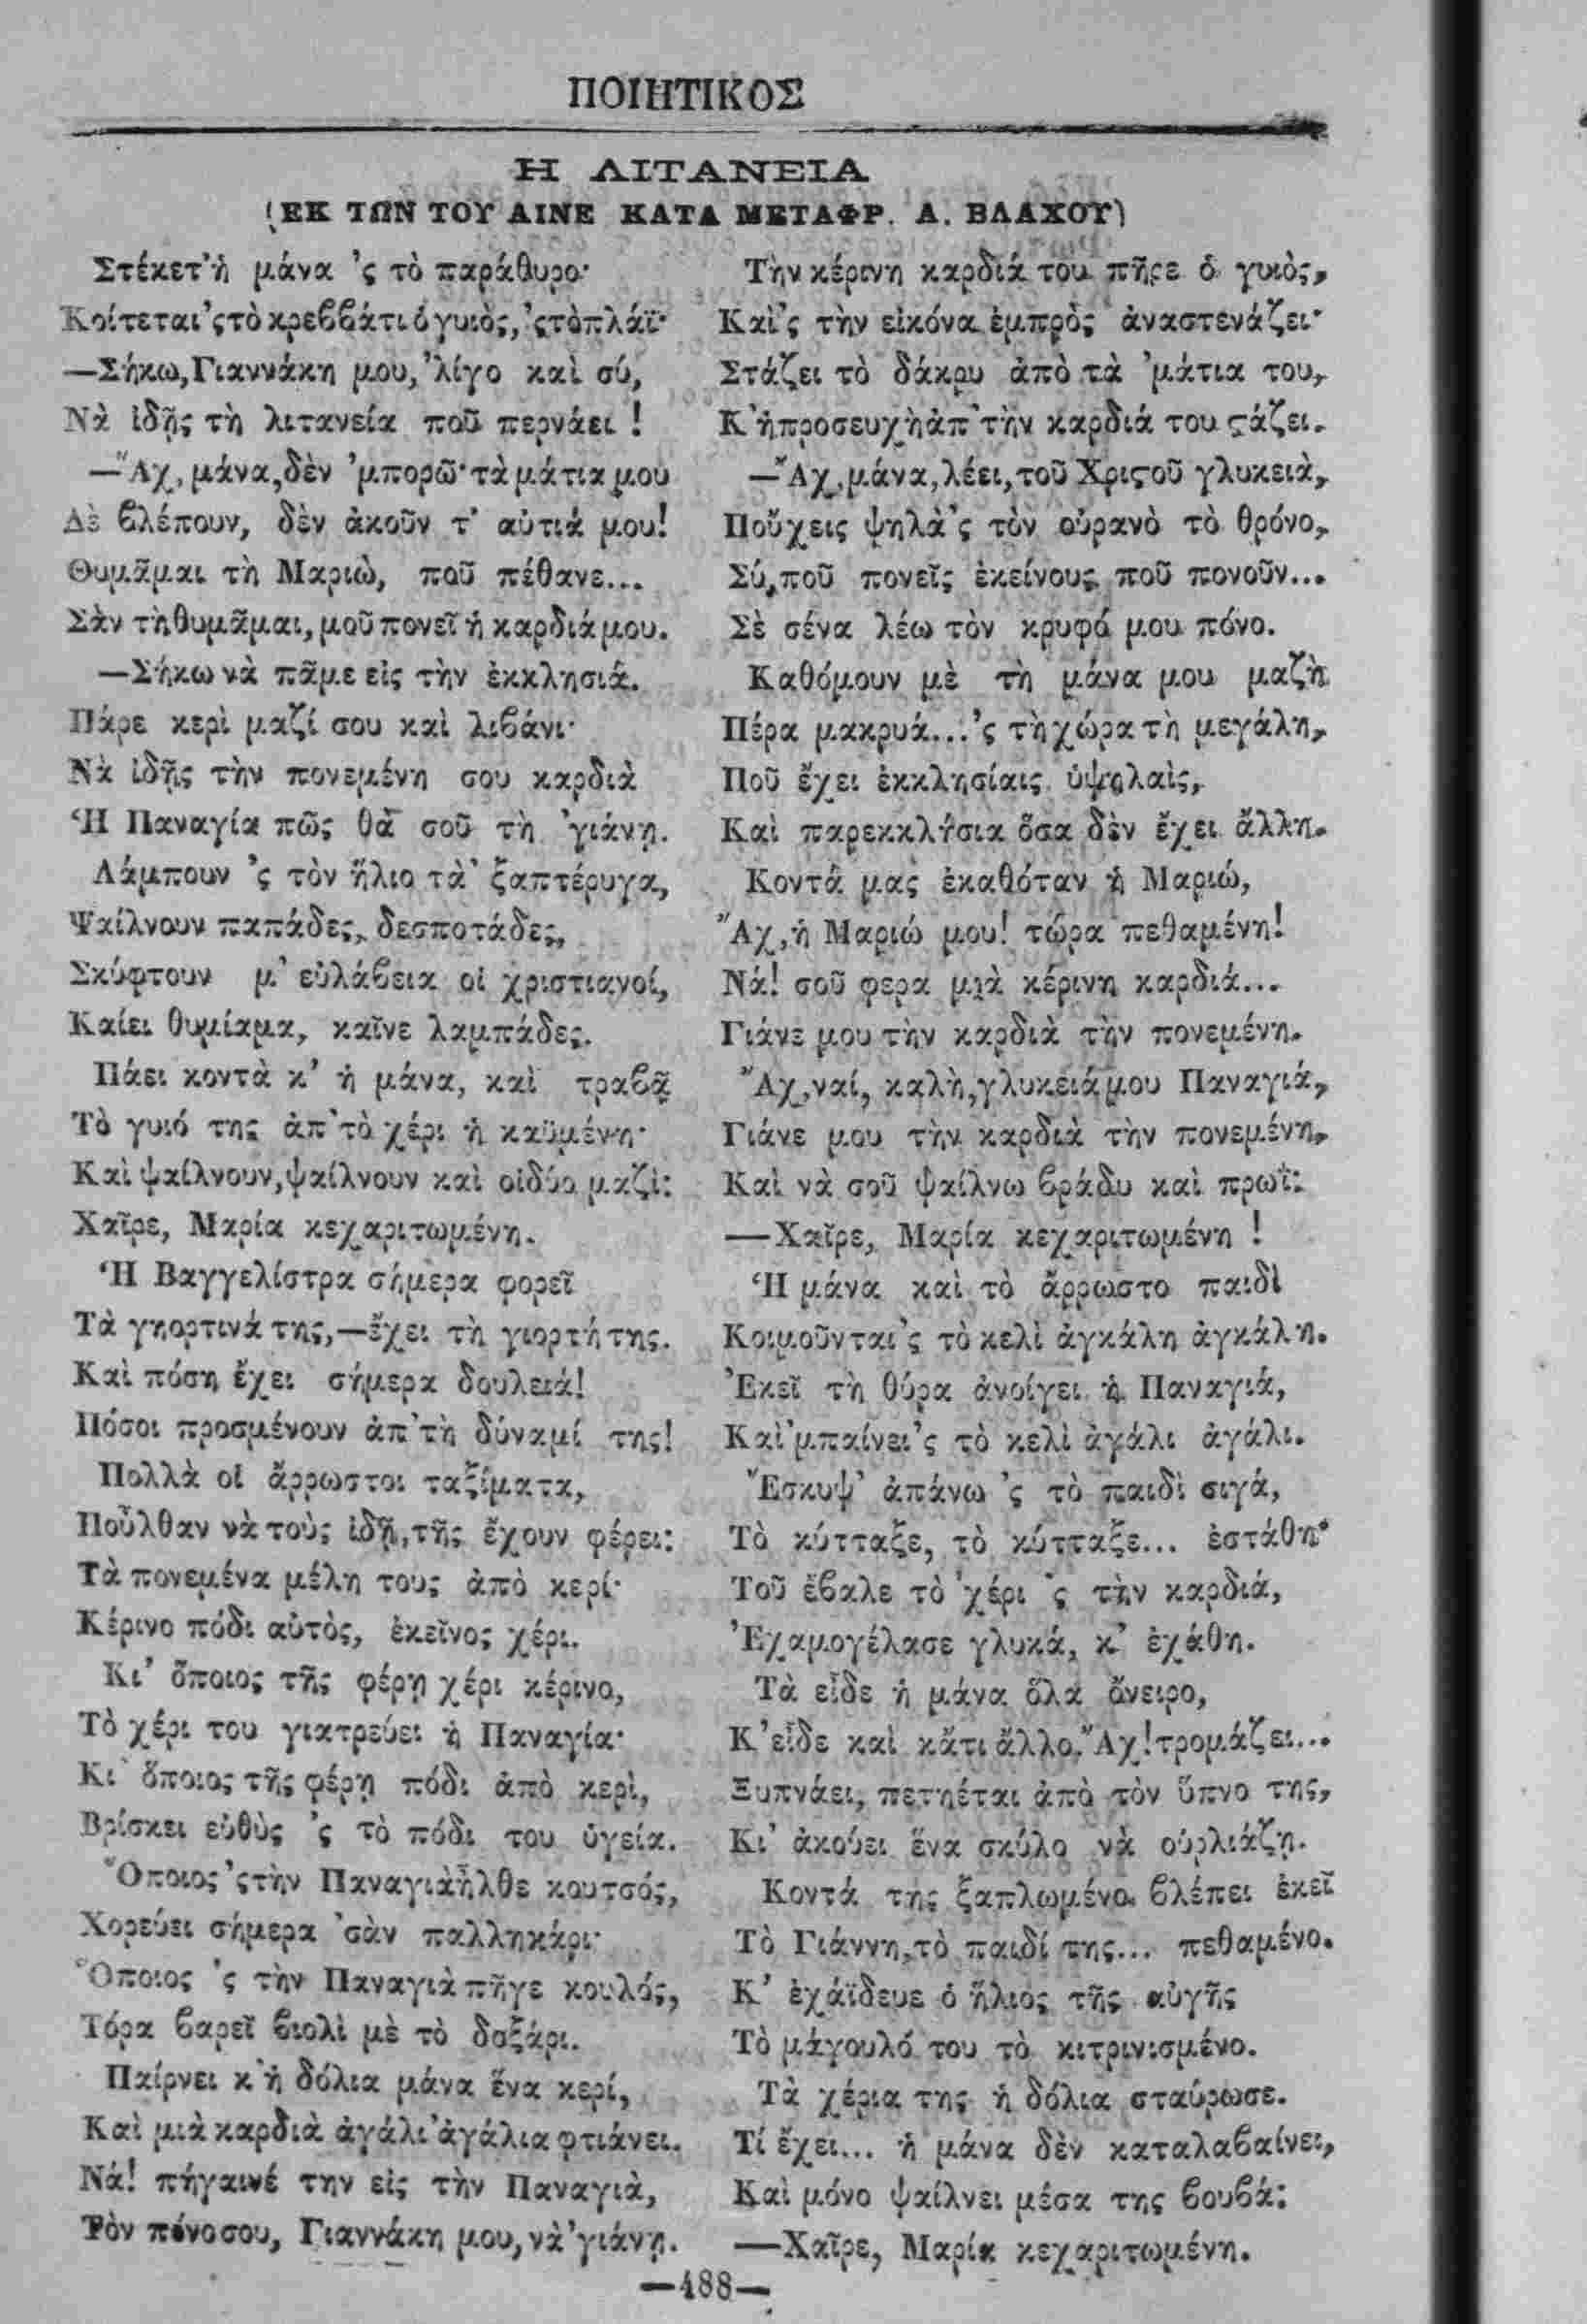 ΠΟΙΗΤΙΚΟΣ
Η ΛΙΤΑΝΕΙΑ
(ΕΚ ΤΩΝ ΤΟΥ ΑΙΝΕ ΚΑΤΑ ΜΕΤΑΦΡ. Α. ΒΛΑΧΟΥ)
Στέκετ' ἡ μάνα 'ς τὸ παράθυρο·
Κοίτεται 'ς τὸ κρεββάτι ὁ γυιὸς, 'ς τὸ πλάϊ·
—Σήκω, Γιαννάκη μου, 'λίγο καὶ σύ,
Νὰ ἰδῇς τὴ λιτανεία ποῦ περνάει !
—Ἄχ, μάνα, δὲν 'μπορῶ· τὰ μάτια μου
Δὲ βλέπουν, δὲν ἀκοῦν τ' αὐτιά μου!
Θυμᾶμαι τὴ Μαριὼ, ποῦ πέθανε...
Σὰν τὴ θυμᾶμαι, μοῦ πονεῖ ἡ καρδιά μου.
—Σήκω νὰ πᾶμε εἰς τὴν ἐκκλησιά.
Πάρε κερὶ μαζί σου καὶ λιβάνι·
Νὰ ἰδῇς τὴν πονεμένη σου καρδιὰ
Ἡ Παναγία πῶς θὰ σοῦ τὴ 'γιάνῃ.
Λάμπουν 'ς τὸν ἥλιο τὰ' ξαπτέρυγα,
Ψαίλνουν παπάδες, δεσποτάδες,
Σκύφτουν μ' εὐλάβεια οἱ χριστιανοί,
Καίει θυμίαμα, καῖνε λαμπάδες.
Πάει κοντὰ κ' ἡ μάνα, καὶ τραβᾷ
Τὸ γυιό της ἀπ' τὸ χέρι ἡ καϋμένη·
Καὶ ψαίλνουν, ψαίλνουν καὶ οἱ δύο μαζὶ:
Χαῖρε, Μαρία κεχαριτωμένη.
Ἡ Βαγγελίστρα σήμερα φορεῖ
Τὰ γηορτινά της,—ἔχει τὴ γιορτή της.
Καὶ πόση ἔχει σήμερα δουλειά!
Πόσοι προσμένουν ἀπ' τὴ δύναμί της!
Πολλὰ οἱ ἄρρωστοι ταξίματα,
Ποὖλθαν νὰ τοὺς ἰδῇ, τῆς ἔχουν φέρει:
Τὰ πονεμένα μέλη τους ἀπὸ κερί·
Κέρινο πόδι αὐτὸς, ἐκεῖνος χέρι.
Κι' ὅποιος τῆς φέρῃ χέρι κέρινο,
Τὸ χέρι του γιατρεύει ἡ Παναγία·
Κι' ὅποιος τῆς φέρῃ πόδι ἀπὸ κερὶ,
Βρίσκει εὐθὺς 'ς τὸ πόδι του ὑγεία.
Ὅποιος 'ς τὴν Παναγιὰ ἦλθε κουτσός,
Χορεύει σήμερα 'σὰν παλληκάρι·
Ὅποιος 'ς τὴν Παναγιὰ πῆγε κουλός,
Τόρα βαρεῖ βιολὶ μὲ τὸ δοξάρι.
Παίρνει κ' ἡ δόλια μάνα ἕνα κερί,
Καὶ μιὰ καρδιὰ ἀγάλι' ἀγάλια φτιάνει.
Νά! πήγαινέ την εἰς τὴν Παναγιὰ,
Τὸν πόνο σου, Γιαννάκη μου, νὰ 'γιάνῃ.
Τὴν κέρινη καρδιά του πῆρε ὁ γυιὸς,
Καὶ 'ς τὴν εἰκόνα ἐμπρὸς ἀναστενάζει·
Στάζει τὸ δάκρυ ἀπὸ τὰ 'μάτια του,
Κ' ἡ προσευχὴ ἀπ' τὴν καρδιά του ςάζει.
—Ἄχ, μάνα, λέει, τοῦ Χριςοῦ γλυκειὰ,
Ποὔχεις ψηλὰ 'ς τὸν οὐρανὸ τὸ θρόνο,
Σύ, ποῦ πονεῖς ἐκείνους ποῦ πονοῦν...
Σὲ σένα λέω τὸν κρυφό μου πόνο.
Καθόμουν μὲ τὴ μάνα μου μαζὴ
Πέρα μακρυά...'ς τὴ χώρα τὴ μεγάλη,
Ποῦ ἔχει ἐκκλησίαις ὑψηλαὶς,
Καὶ παρεκκλήσια ὅσα δὲν ἔχει ἄλλη.
Κοντά μας ἐκαθόταν ἡ Μαριώ,
Ἄχ, ἡ Μαριώ μου! τώρα πεθαμένη!
Νά! σοῦ φερα μιὰ κέρινη καρδιά...
Γιάνε μου τὴν καρδιὰ τὴν πονεμένη.
Ἄχ, ναί, καλὴ, γλυκειά μου Παναγιά,
Γιάνε μου τὴν καρδιὰ τὴν πονεμένη,
Καὶ νὰ σοῦ ψαίλνω βράδυ καὶ πρωΐ:
—Χαῖρε, Μαρία κεχαριτωμένη !
Ἡ μάνα καὶ τὸ ἄρρωστο παιδὶ
Κοιμοῦνται 'ς τὸ κελὶ ἀγκάλη ἀγκάλη.
Ἐκεῖ τὴ θύρα ἀνοίγει ἡ Παναγιά,
Καὶ 'μπαίνει 'ς τὸ κελὶ ἀγάλι ἀγάλι.
Ἔσκυψ' ἀπάνω 'ς τὸ παιδὶ σιγά,
Τὸ κύτταξε, τὸ κύτταξε... ἐστάθη·
Τοῦ ἔβαλε τὸ χέρι 'ς τὴν καρδιά,
Ἐχαμογέλασε γλυκά, κ' ἐχάθη.
Τὰ εἶδε ἡ μάνα ὅλα ὄνειρο,
Κ' εἶδε καὶ κἄτι ἄλλο. Ἄχ! τρομάζει...
Ξυπνάει, πετηέται ἀπὸ τὸν ὕπνο της,
Κι' ἀκούει ἕνα σκύλο νὰ οὐρλιάζῃ.
Κοντά της ξαπλωμένο βλέπει ἐκεῖ
Τὸ Γιάννη, τὸ παιδί της... πεθαμένο.
Κ' ἐχάϊδευε ὁ ἥλιος τῆς αὐγῆς
Τὸ μάγουλό του τὸ κιτρινισμένο.
Τὰ χέρια της ἡ δόλια σταύρωσε.
Τί ἔχει... ἡ μάνα δὲν καταλαβαίνει,
Καὶ μόνο ψαίλνει μέσα της βουβά:
—Χαῖρε, Μαρία κεχαριτωμένη.
—488—